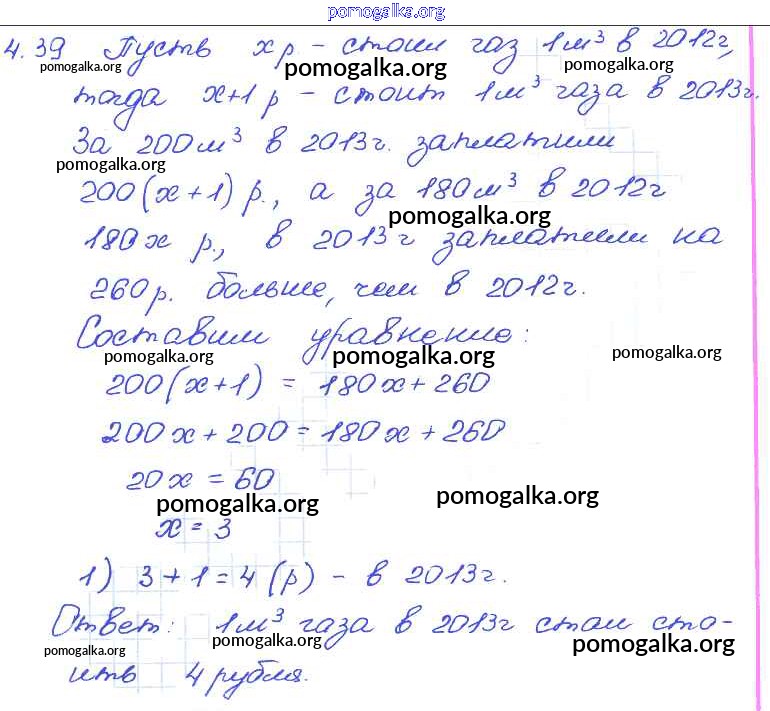 pomogalka.org
4.39 Пусть x р - стоил газ 1м³ в 2012г,
pomogalka.org pomogalka.org pomogalka.org
тогда x+1 р - стоит 1м³ газа в 2013г.
За 200м³ в 2013г. заплатили
pomogalka.org
200(x+1) р., а за 180м³ в 2012г
pomogalka.org
180x р., в 2013г заплатили на
260р. больше, чем в 2012г.
Составим уравнение:
pomogalka.org pomogalka.org pomogalka.org
200(x+1) = 180x+260
200x+200=180x+260
20x=60
pomogalka.org pomogalka.org
x=3
1) 3+1=4(р) - в 2013г.
Ответ: 1м³ газа в 2013г стал сто-
pomogalka.org pomogalka.org pomogalka.org
ить 4 рубля.